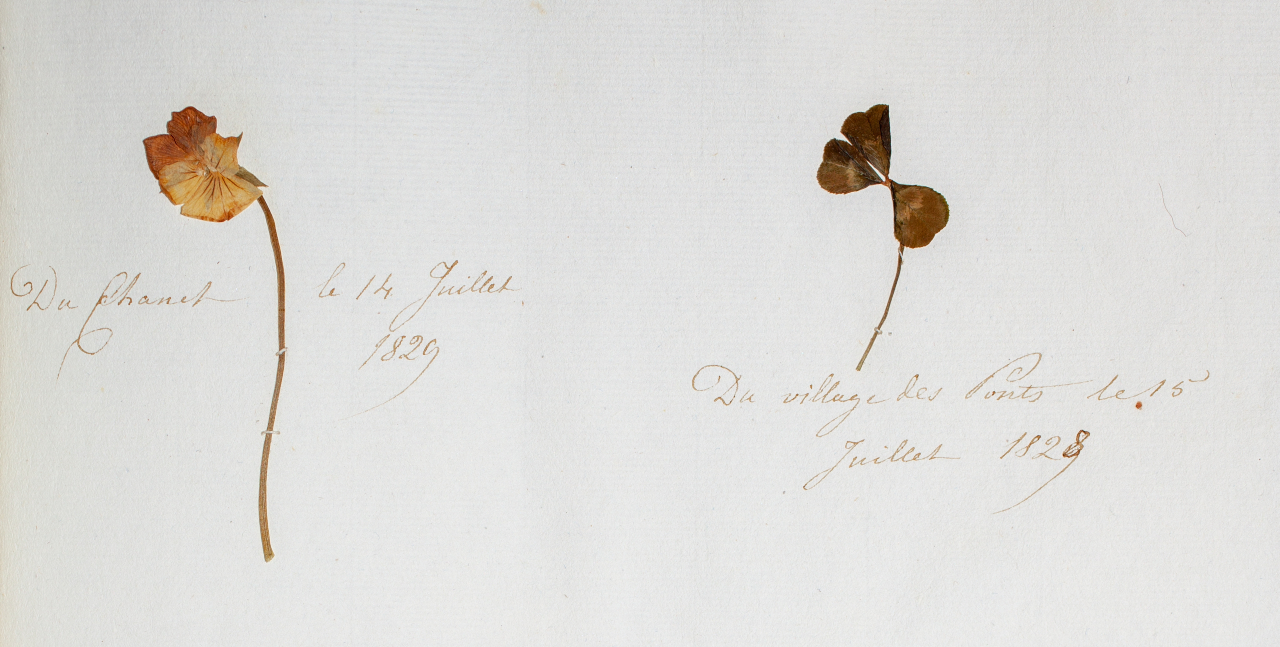 Du Chanet le 14 Juillet
1829
Du village des Ponts le 15
Juillet 1829